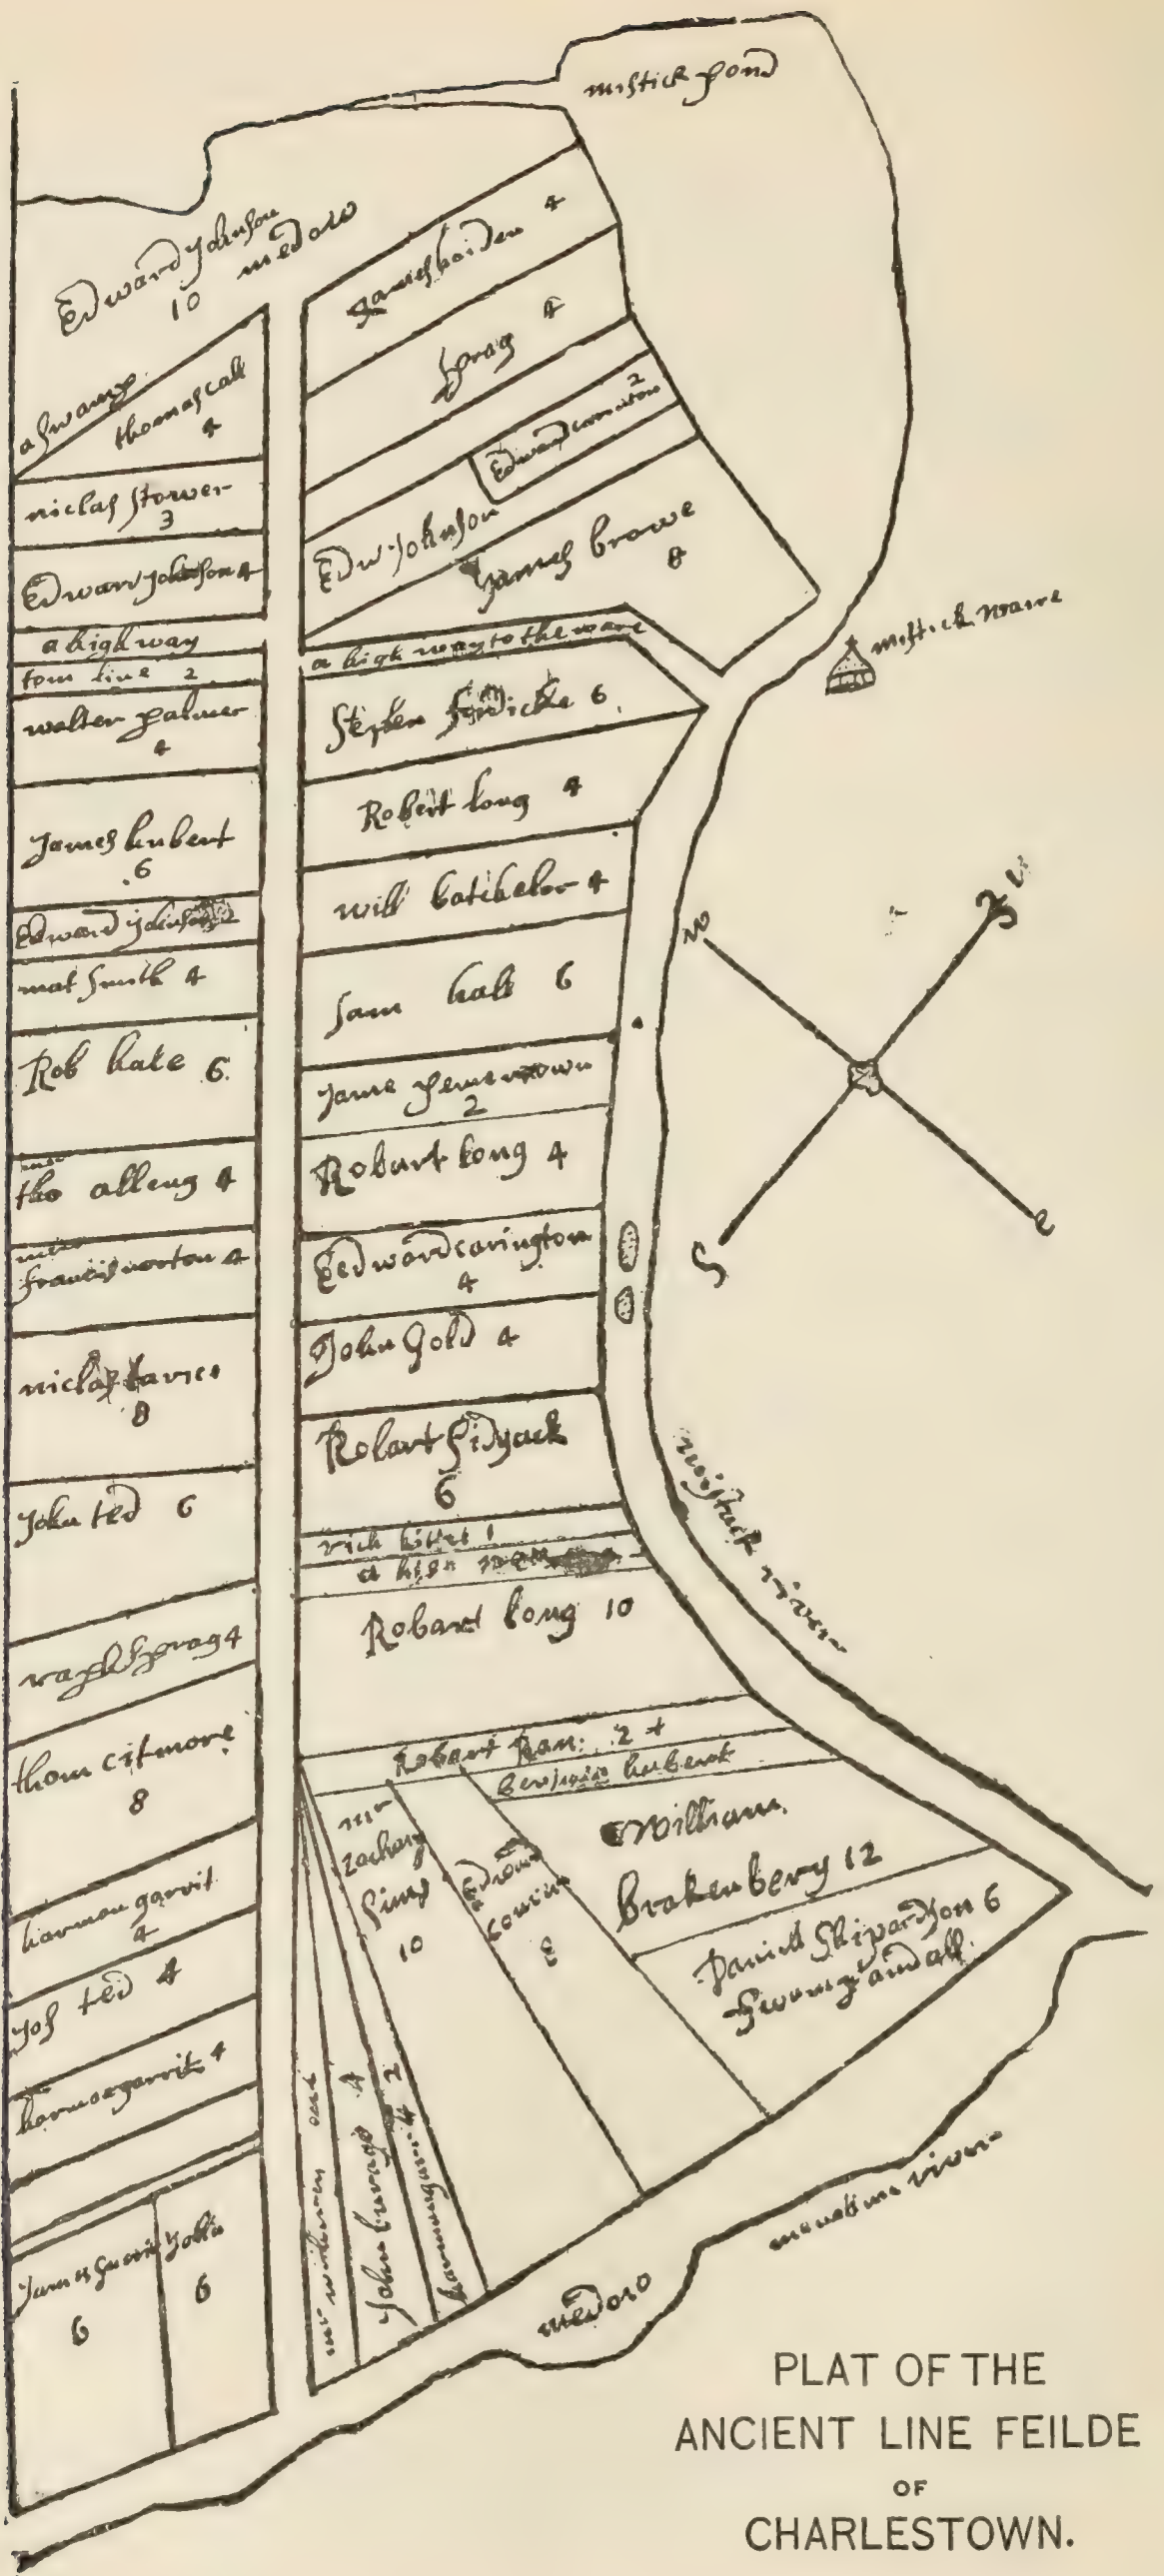 mistick pond
Edward Johnson
10 medow
a swamp
thomas call
4
niclas stower
3
Edward Johnson 4
a high way
tom line 2
walter palmer
4
James hubert
6
Edward Johnson 2
mat Smith 4
Rob hale 6
tho alleng 4
francis norton 4
niclas davies
8
John ted 6
raph Sprag 4
thom citmore
8
harman garrit
4
Jos ted 4
harmoegarrit 4
James
6
John
6
James haiden 4
Sprag 4
2
Edward
Edw Johnson
James browe
8
a high way to the ware
Stephen fordicke 6
Robert long 4
will batchelor 4
sam hall 6
Jame
2
Robart long 4
Eedward carington
4
John Gold 4
Robart Sidyack
6
rich 1
a high way
Robart long 10
Robart Ran: 2
benjmin hubert
mr
zachery
Sims
10
Edward
8
William
Brakenbery 12
Daniell Shipardson 6
mr
John burage 4
2
mistick ware
N
S
E
mistick river
menotime river
medow
PLAT OF THE
ANCIENT LINE FEILDE
OF
CHARLESTOWN.